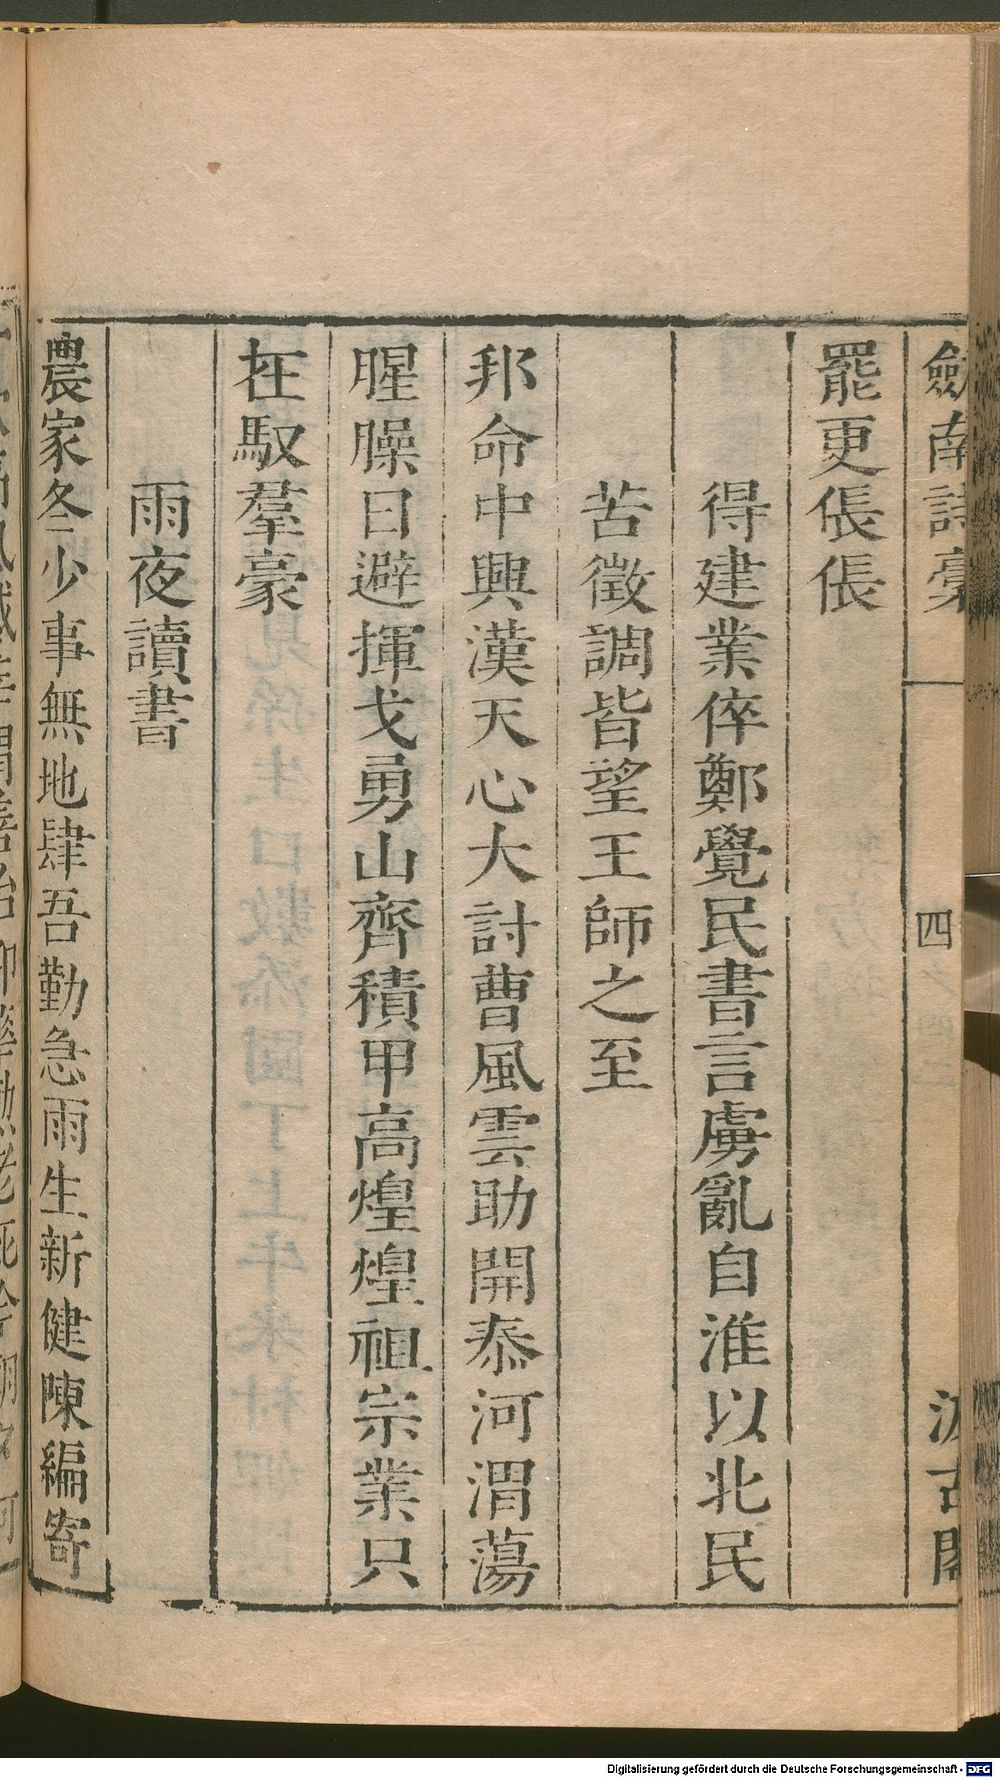 劒南詩稾 四 汲古閣
罷更倀倀
得建業倅鄭覺民書言虜亂自淮以北民
苦徵調皆望王師之至
邦命中興漢天心大討曹風雲助開泰河渭蕩
腥臊日避揮戈勇山齊積甲高煌煌祖宗業只
在馭羣豪
雨夜讀書
農家冬少事無地肆吾勤急雨生新健陳編寄
Digitalisierung gefördert durch die Deutsche Forschungsgemeinschaft - DFG